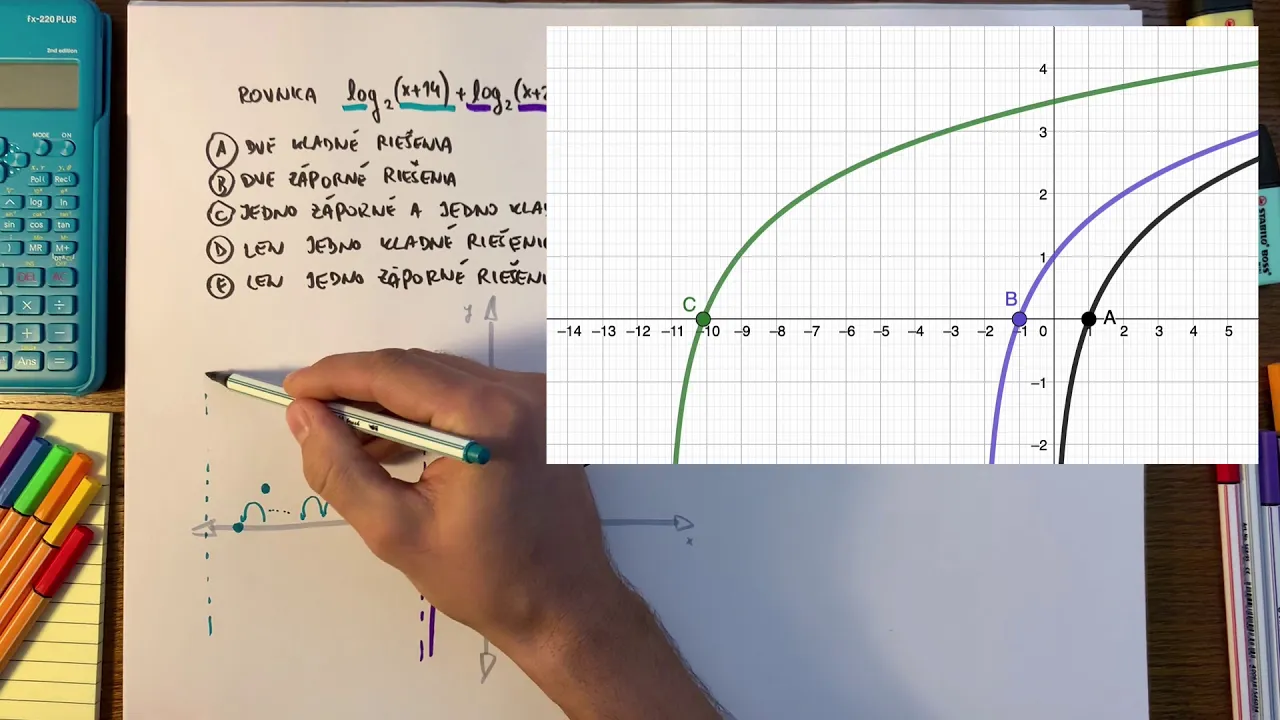 fx-220 PLUS
2nd edition
MODE ON
Pol( Rec(
log ln
sin cos tan
) MR M+
× ÷
+ −
Ans =
ROVNICA log₂(x+14)+log₂(x+2
A DVE KLADNÉ RIEŠENIA
B DVE ZÁPORNÉ RIEŠENIA
C JEDNO ZÁPORNÉ A JEDNO KLA
D LEN JEDNO KLADNÉ RIEŠENI
E LEN JEDNO ZÁPORNÉ RIEŠENI
y
x
4
3
2
1
C B A
−14 −13 −12 −11 −10 −9 −8 −7 −6 −5 −4 −3 −2 −1 0 2 3 4 5
−1
−2
STABILO BOSS